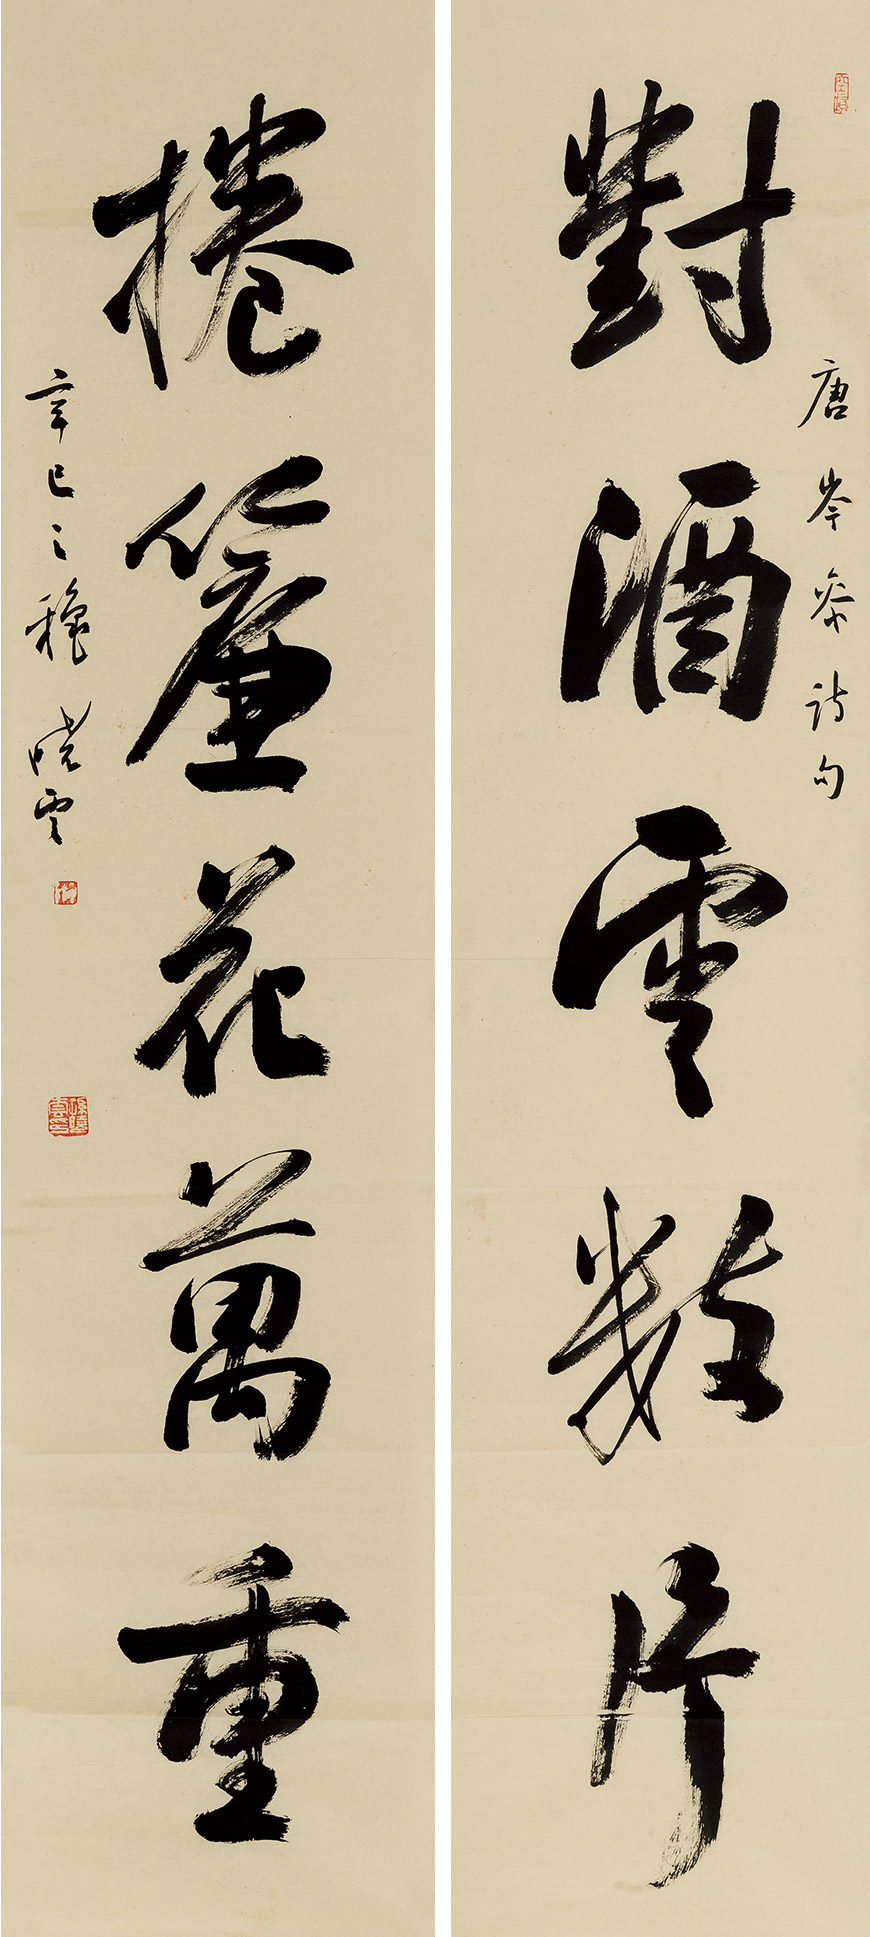 對酒雲數片
唐岑參詩句
捲簾花萬重
辛巳之穐曉雲